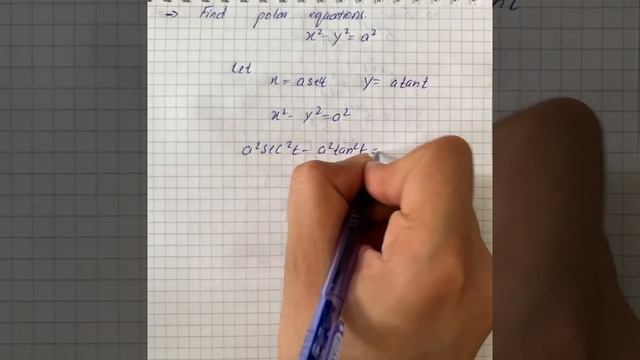 → Find polar equations.
x² - y² = a²
Let
x = a sect y = a tant
x² - y² = a²
a²sec²t - a²tan²t =